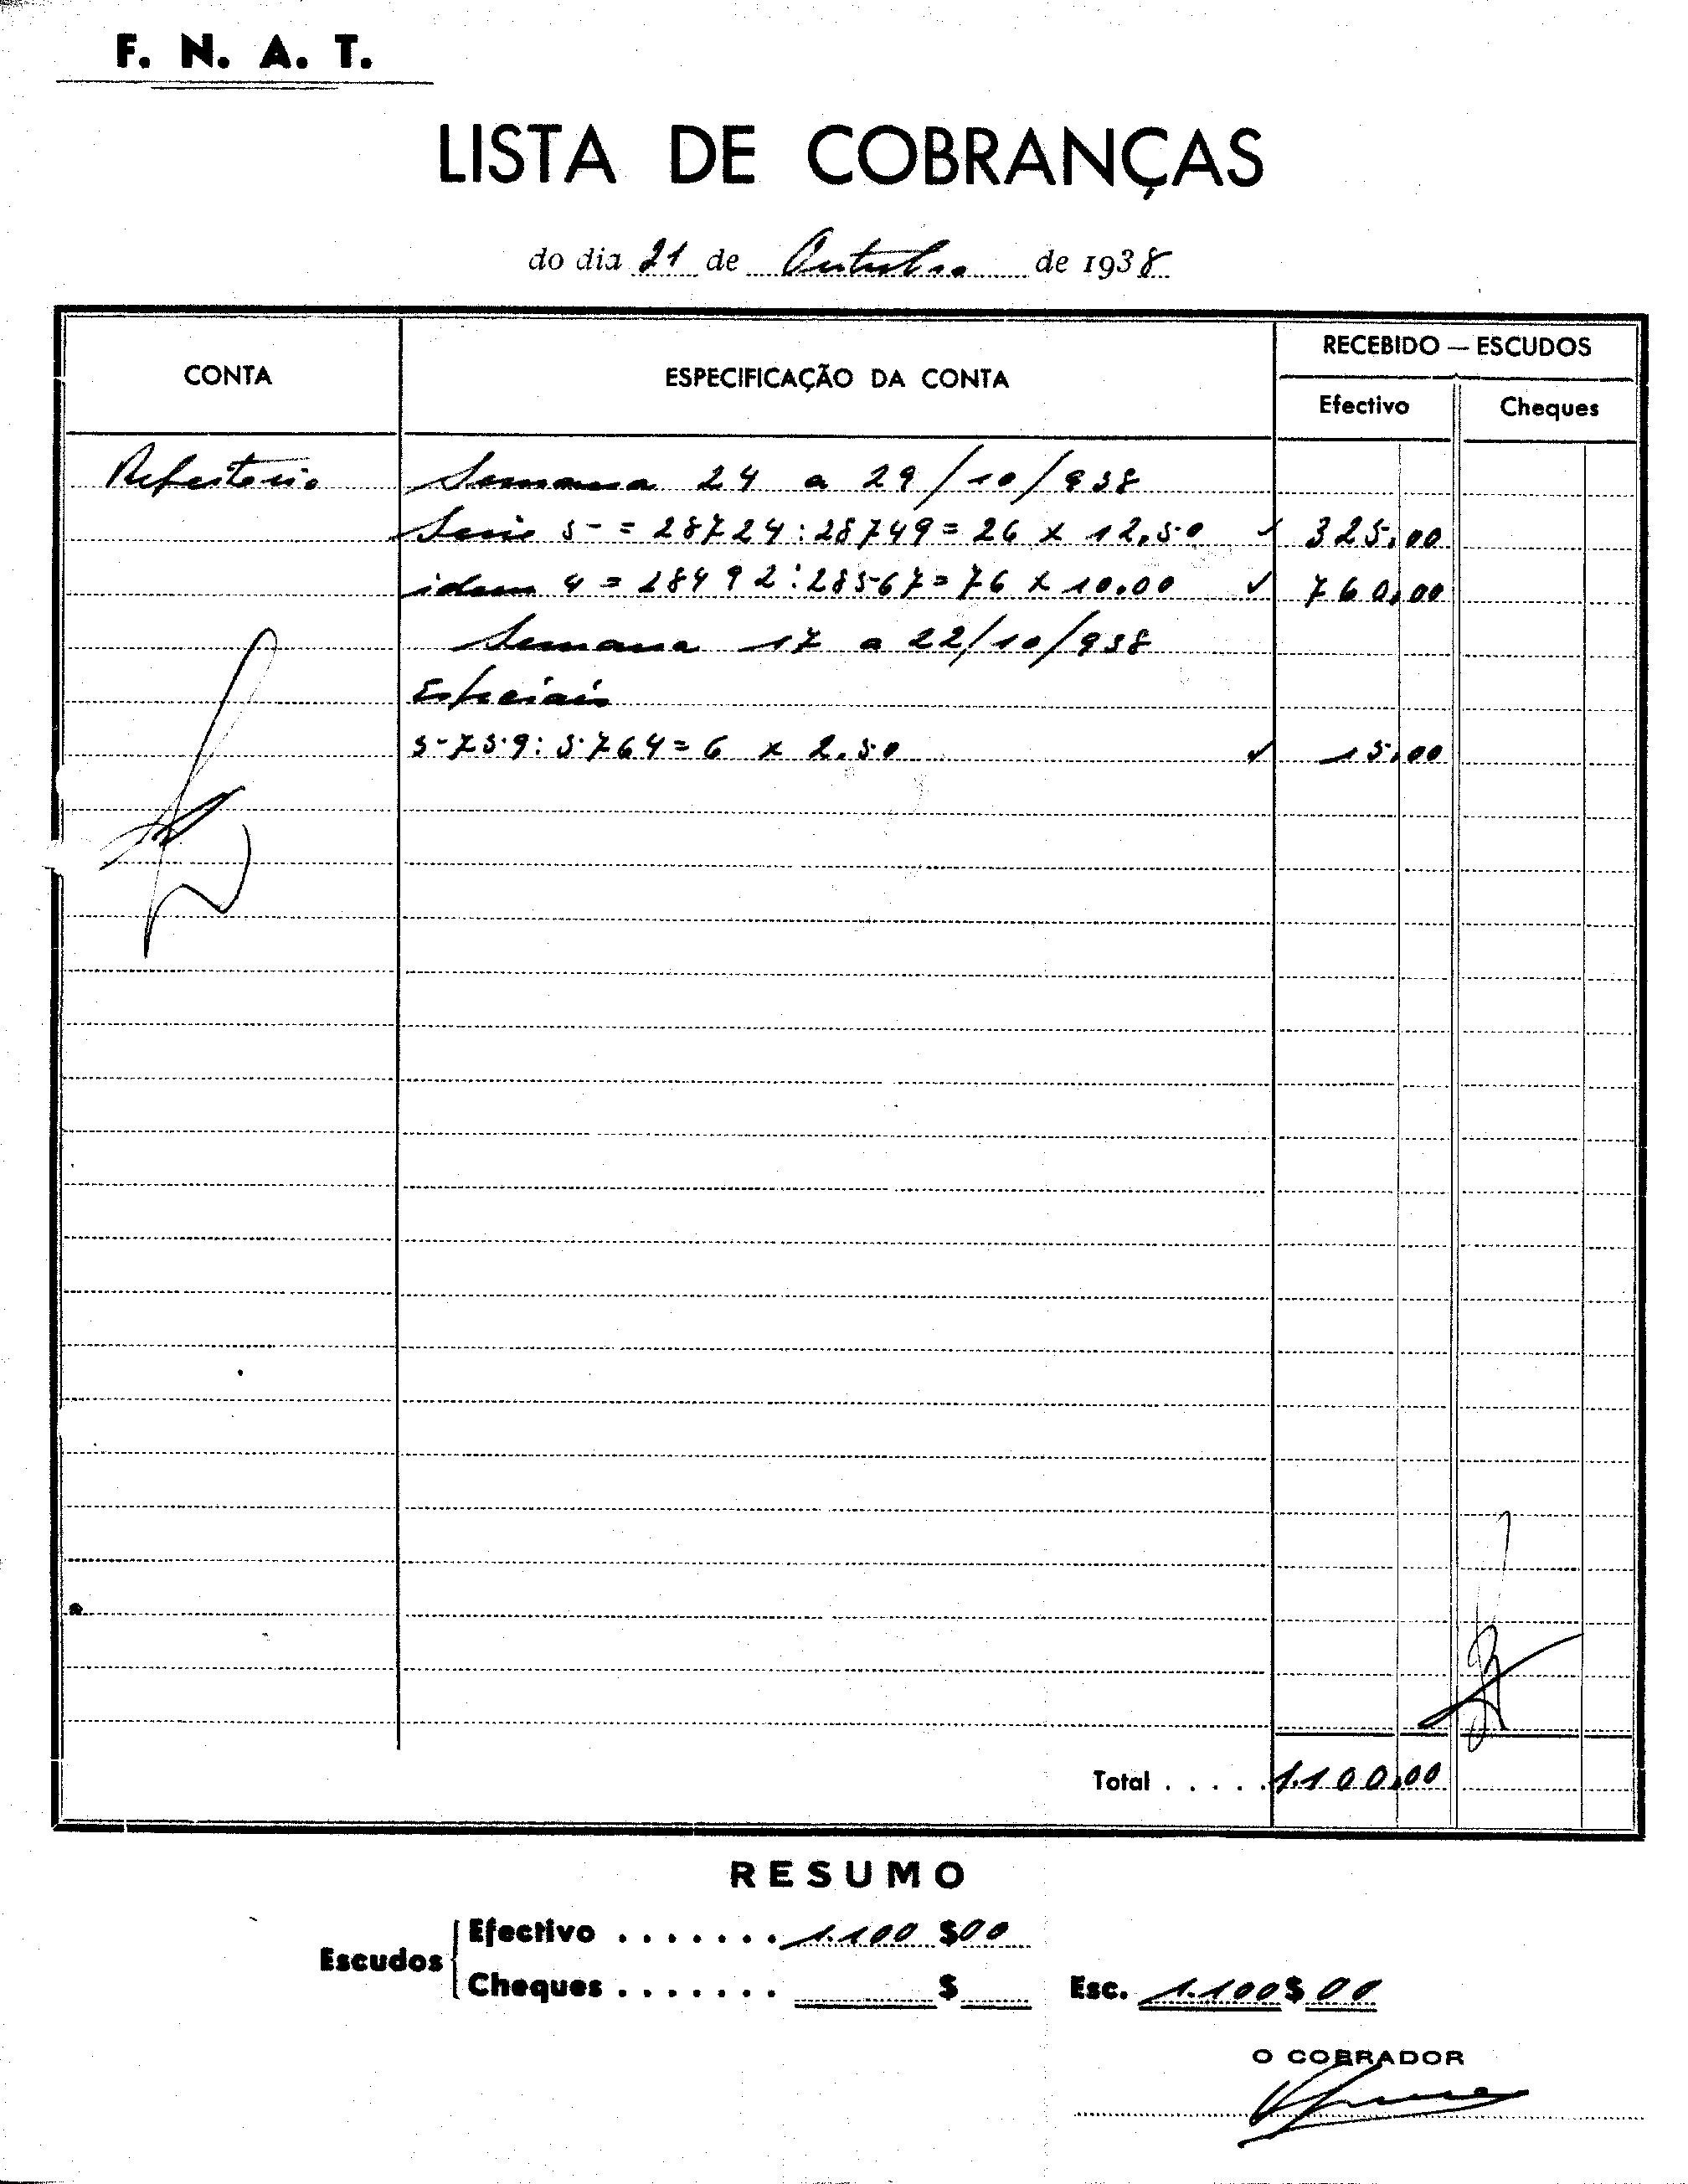 F. N. A. T.
LISTA DE COBRANÇAS
do dia 21 de Outubro de 1938
CONTA ESPECIFICAÇÃO DA CONTA RECEBIDO — ESCUDOS
Efectivo Cheques
Refeitorio Semana 24 a 29/10/938
Serie 5 - = 28724 : 28749 = 26 x 12,50 ✓ 325,00
idem 4 = 28492 : 28567 = 76 x 10.00 ✓ 760,00
Semana 17 a 22/10/938
Especiais
5759 : 5764 = 6 x 2.50 ✓ 15,00
Total . . . . . 1.100,00
RESUMO
Escudos
Efectivo . . . . . . . 1.100 $00
Cheques . . . . . . . $ Esc. 1.100$00
O COBRADOR